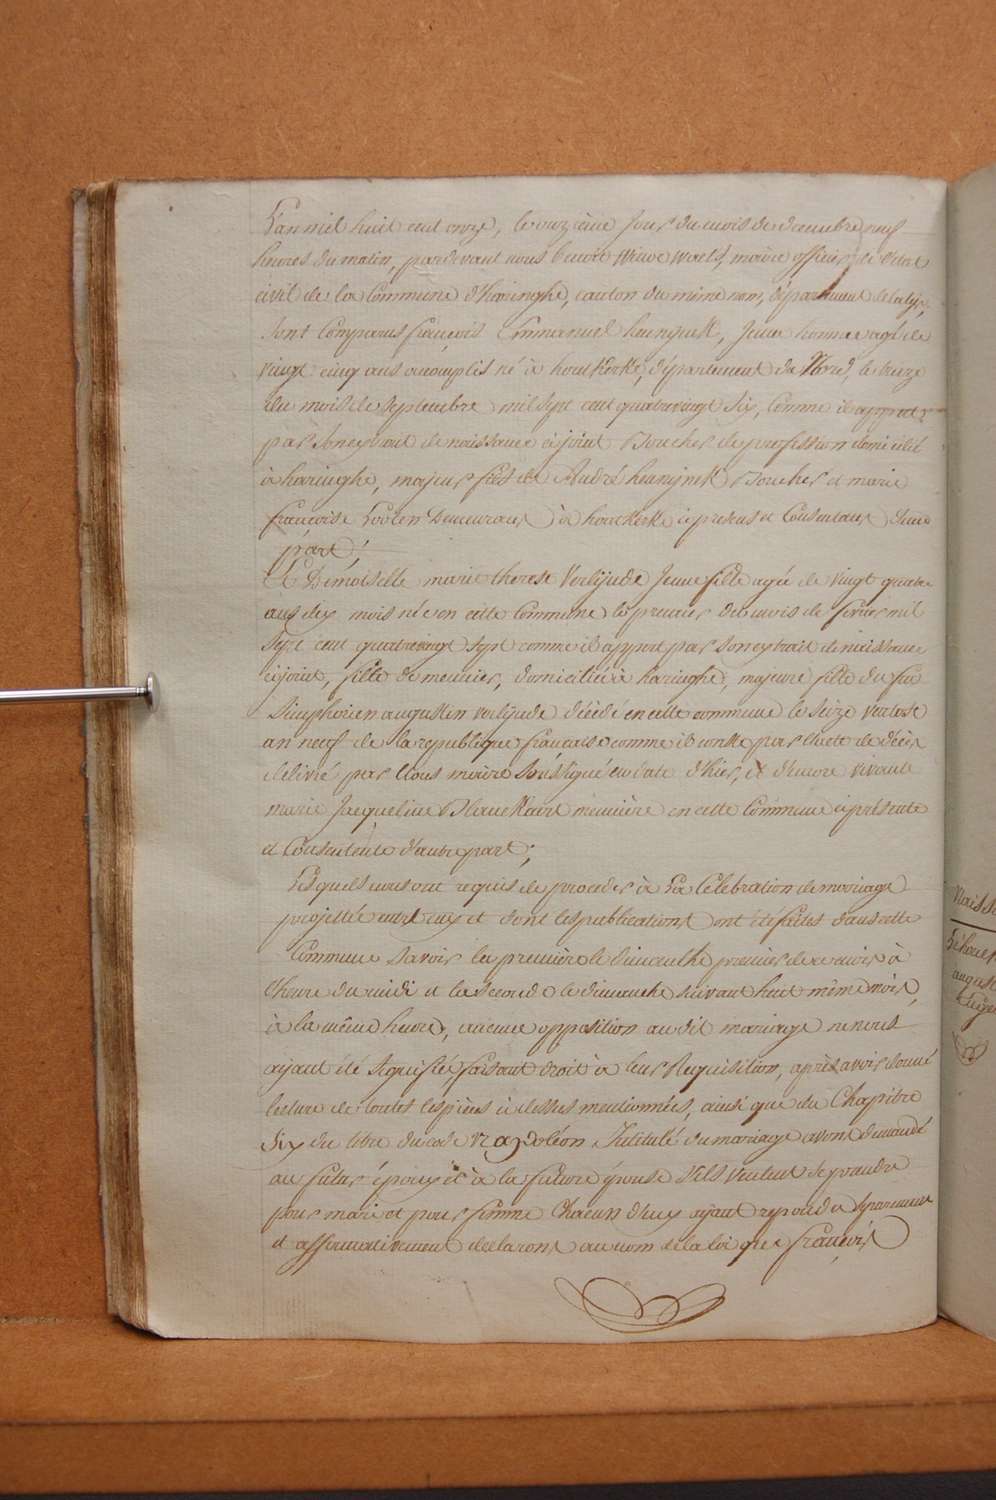 L'an mil huit cent onze, le onzième Jour du mois de decembre neuf
heures du matin, pardevant nous Benoit Weuwe Waels, maire officier de l'état
civil de la Commune d'haringhe, canton du même nom, département de la lijs,
sont Comparus françois Emmanuel heunynck, Jeune homme agé de
vingt cinq ans accomplis né à houtkerke, département du Nord, le treize
du mois de septembre mil sept cent quatrevingt six, Comme il appert
par son extrait de naissance cijoint Boucher de profession domicilié
à haringhe, majeur fils de André heunynck Boucher et marie
françoise Demeurans à houtkerke ci presens et Consentans d'une
part;
Et Démoiselle marie therese Verlynde Jeune fille agée de vingt quatre
ans dix mois née en cette Commune le premier du mois de fevrier mil
sept cent quatrevingt sept comme il appert par son extrait de naissance
cijoint, fille de meunier, domiciliée à haringhe, majeure fille du feu
Simphorien augustin verlynde décédé en cette commune le seize ventose
an neuf de la republique française comme il conste par l'acte de décès
délivré par Nous maire soussigné en date d'hier, et d'encore vivante
marie Jacqueline Blanckaert meunière en cette Commune ci présente
et Consentente d'autre part;
Lesquels nous ont requis de proceder à La Célébration de mariage
projettée entre eux et dont les publications ont été faites dans cette
Commune savoir la première le dimanche premier de ce mois à
l'heure du midi et la seconde le dimanche suivant huit même mois,
à la même heure, aucune opposition au dit mariage ne nous
ajant été signifiée, faisant droit à leur Requisition, après avoir donné
lecture de toutes les pièces ci dessus mentionnées, ainsi que du Chapitre
six du titre du code Napoléon Intitulé du mariage avons demandé
au futur époux et à la future épouse s'ils veulent se prendre
pour mari et pour femme Chacun d'eux ajant repondu séparement
et affirmativement declarons au nom de la loi que françois